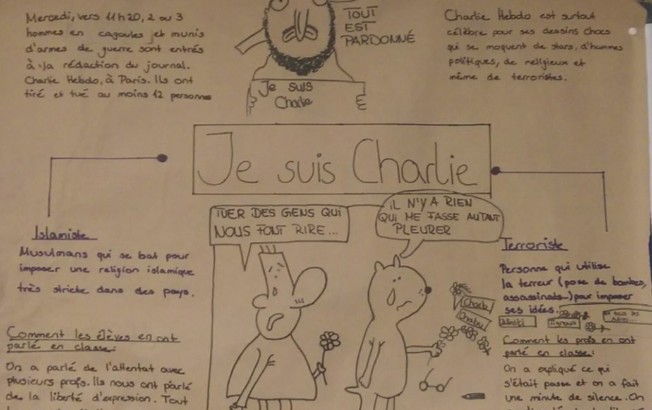 Mercredi, vers 11h20, 2 ou 3
hommes en cagoules et munis
d'armes de guerre sont entrés
à la rédaction du journal.
Charlie Hebdo, à Paris. Ils ont
tiré et tué au moins 12 personne
TOUT
EST
PARDONNÉ
Je suis
Charlie
Charlie Hebdo est surtout
célèbre pour ses dessins chocs
qui se moquent de stars, d'hommes
politiques, de religieux et
même de terroristes.
Je suis Charlie
Islamiste
Musulmans qui se bat pour
imposer une religion islamique
très stricte dans des pays.
Comment les élèves en ont
parlé en classe:
On a parlé de l'attentat avec
plusieurs profs. Ils nous ont parlé
de la liberté d'expression. Tout
TUER DES GENS QUI
NOUS FONT RIRE...
IL N'Y A RIEN
QUI ME FASSE AUTANT
PLEURER
Charb
Cabu
Wolinski
Tignous
Terroriste
Personne qui utilise
la terreur (pose de bombes,
assassinats) pour imposer
ses idées.
Comment les profs en ont
parlé en classe:
On a expliqué ce qui
s'était passé et on a fait
une minute de silence. On